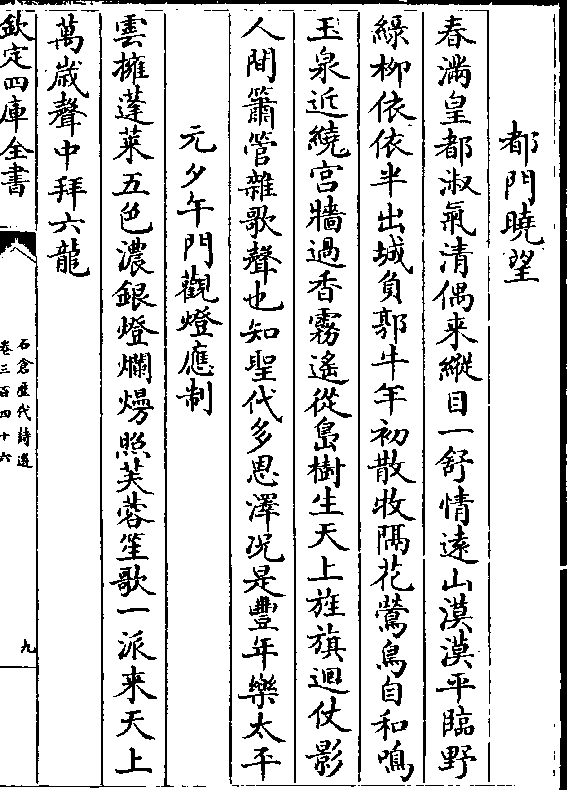 都門曉望
春滿皇都淑氣清偶来縱目一舒情逺山漠漠平臨野
緑柳依依半出城負郭牛羊初散牧隔花鶯鳥自和鳴
玉泉近繞宮牆過香霧遙從島樹生天上旌旗迴仗影
人間簫管雜歌聲也知聖代多恩澤况是豐年樂太平
元夕午門觀燈應制
雲擁蓬萊五色濃銀燈爛熳照芙蓉笙歌一派来天上
萬歲聲中拜六龍
欽定四庫全書
石倉歷代詩選
卷三百四十六
九